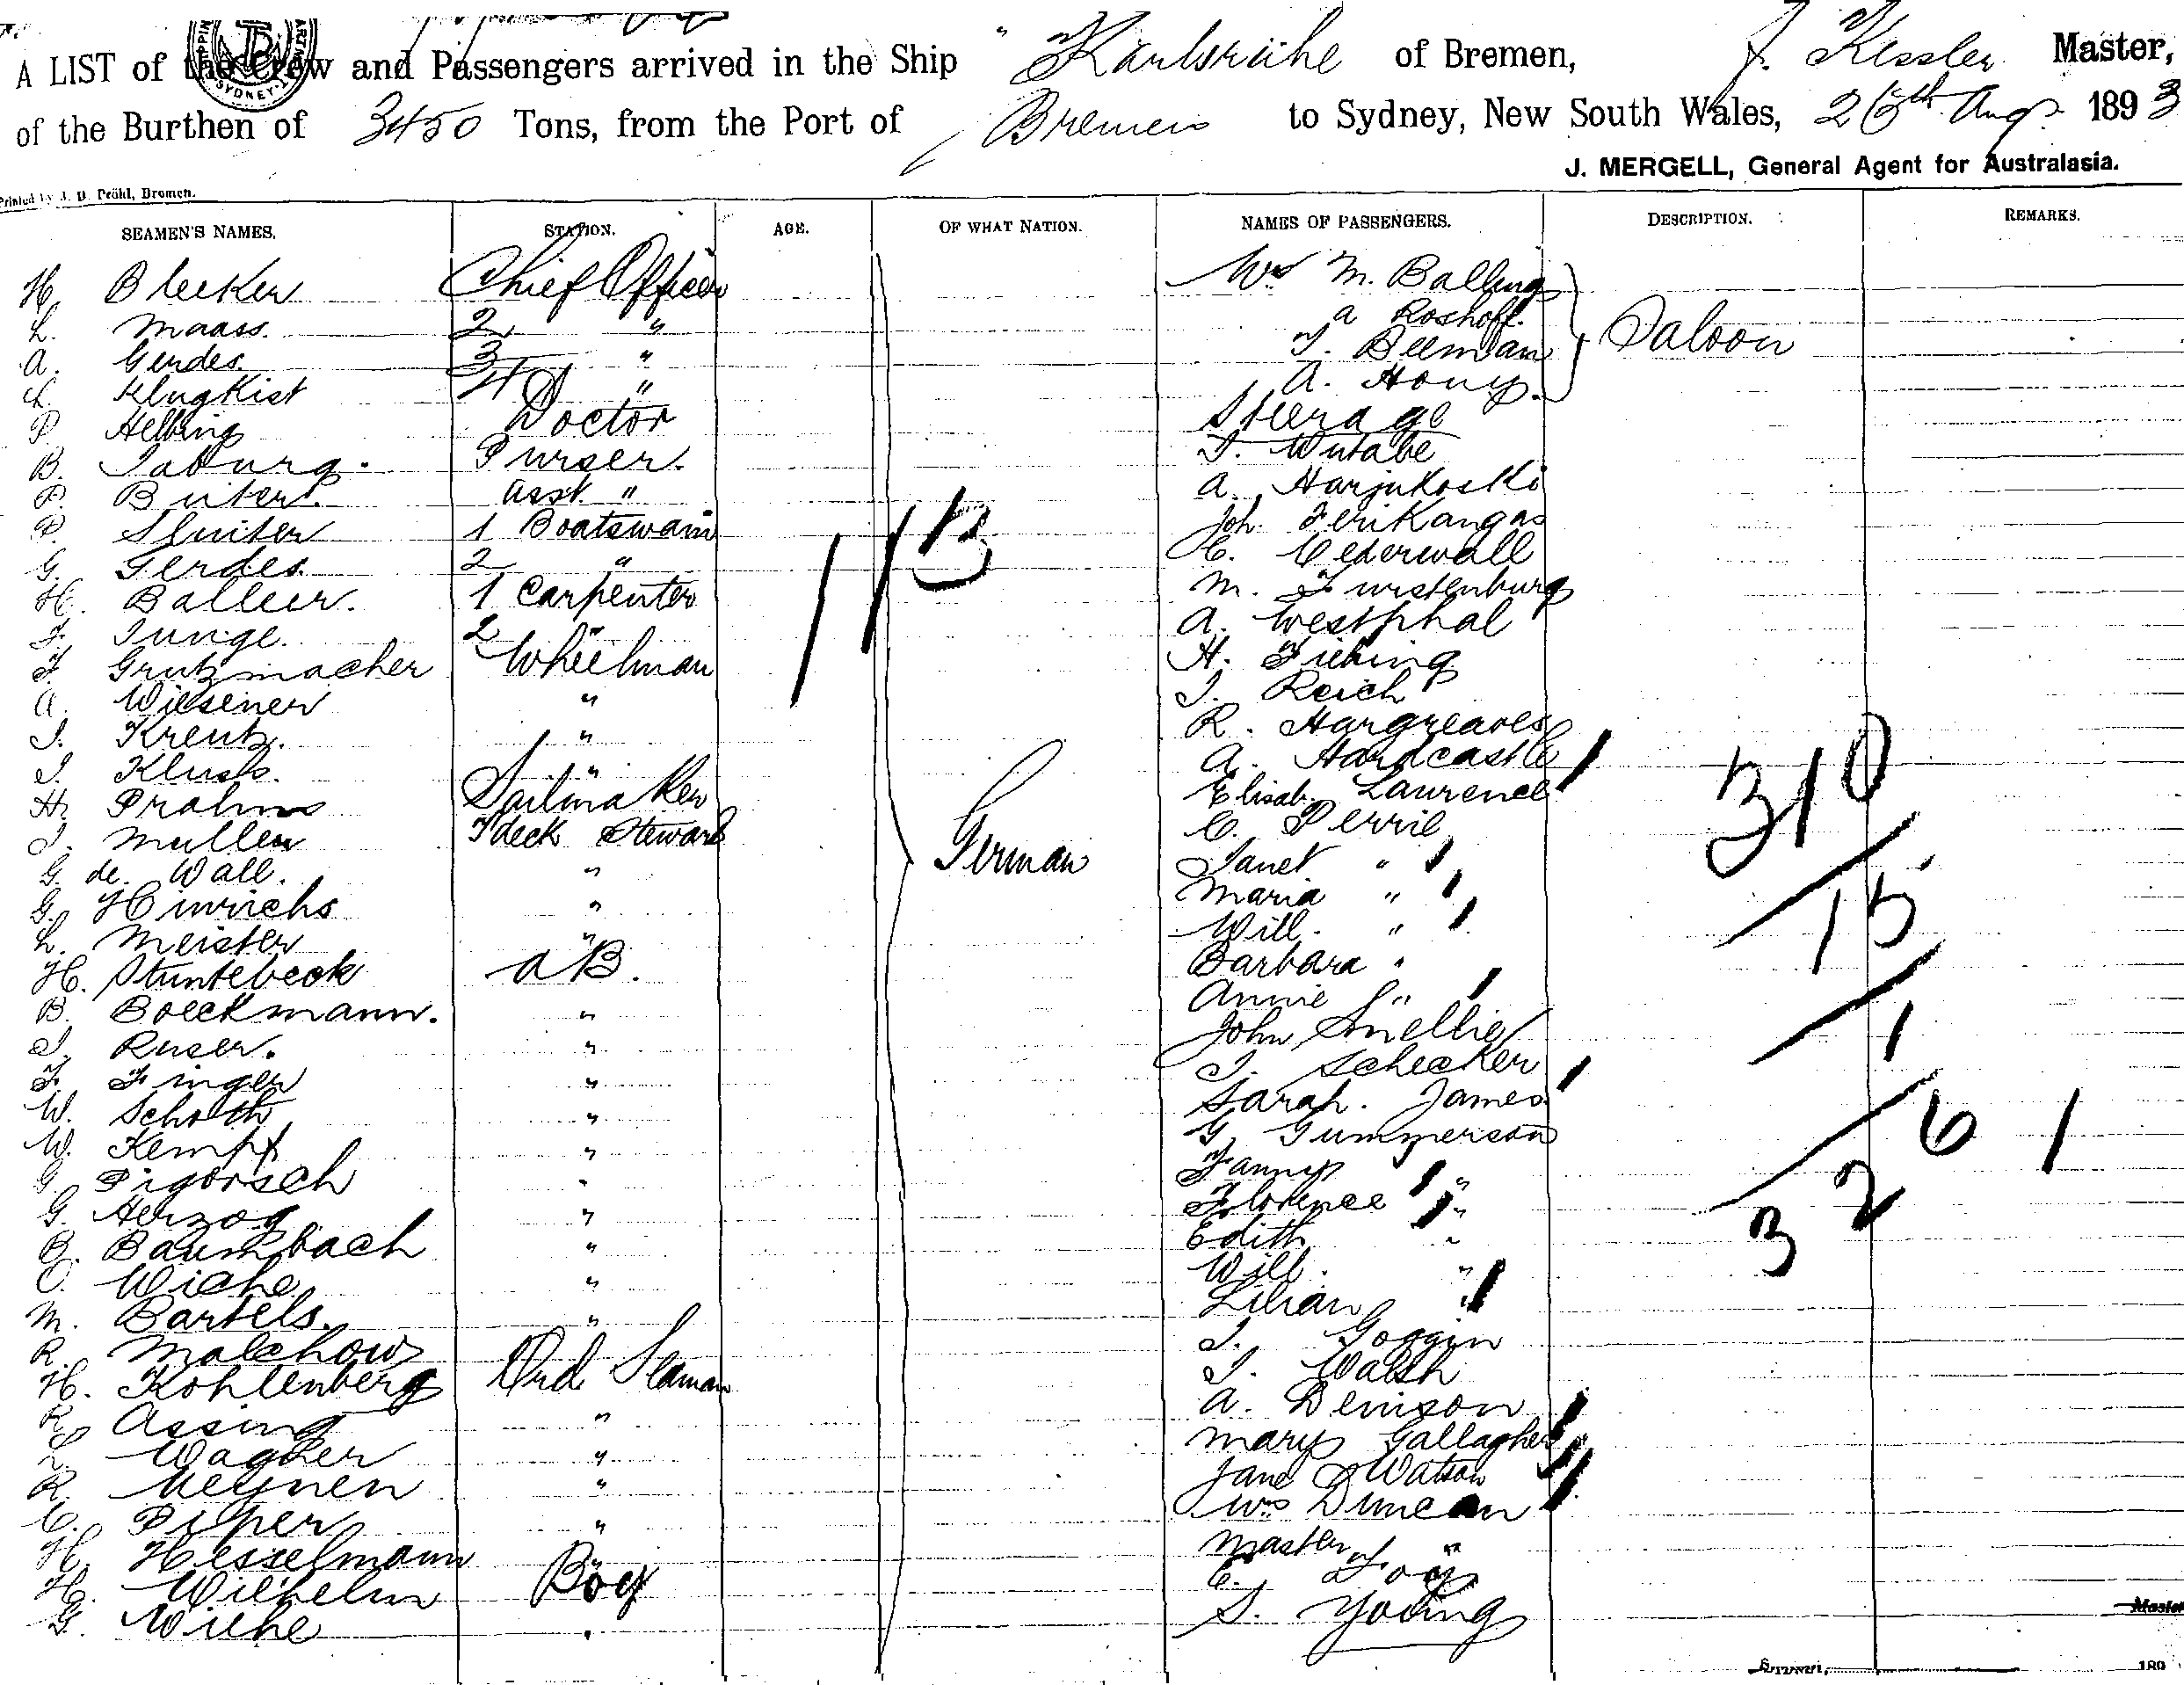 A LIST of the Crew and Passengers arrived in the Ship "Karlsruhe of Bremen, J. Kessler Master,
of the Burthen of 3450 Tons, from the Port of Bremen to Sydney, New South Wales, 26th Aug. 1893
J. MERGELL, General Agent for Australasia.
Printed by J. D. Pröhl, Bremen.
SEAMEN'S NAMES. STATION. AGE. OF WHAT NATION. NAMES OF PASSENGERS. DESCRIPTION. REMARKS.
H. Bleeker Chief Officer
L. Maass. 2 "
A. Gerdes. 3 "
L. Klugkist 4 "
P. Helbing Doctor
B. Taburg. Purser.
P. Buter. Asst. "
P. Sluiter 1 Boatswain
G. Gerdes. 2 "
H. Balleer. 1 Carpenter
F. Junge. 2 "
F. Grutzmacher Wheelman
A. Wiesener "
J. Kreutz. "
J. Kluss. "
H. Prahms Sailmaker
J. Muller Tdeck Steward
G. de Wall. "
G. Hinrichs "
L. Meister "
H. Stuntebeck AB.
B. Boeckmann. "
J. Ruser. "
F. Finger "
W. Schroth "
W. Kempf "
G. Pigorsch "
G. Herzog "
B. Baumbach "
O. Wiehe "
M. Bartels. "
R. Malchow
H. Kohlenberg Ord Seaman
R. Assing "
L. Wagner "
R. Meynen "
C. Piper "
H. Hesselmann "
H. Wilhelm Boy
G. Wiehe "
113
German
Ws M. Balling
A Roshoff.
T. Beeman
A. Hony.
Saloon
Steerage
J. Wutabe
A. Harjukoski
Joh. Perikangas
C. Cederwall
M. Furstenburg
A. Westphal
H. Fieking
J. Reich
R. Hargreaves
A. Hardcastle
Elisab. Laurence
C. Perril
Janet "
Maria "
Will. "
Barbara "
Annie "
John Smellie
J. Schecker
Sarah. James
G. Gummerson
Fanny "
Florence "
Edith "
Will. "
Lilian "
J. Goggin
J. Walsh
A. Denison
Mary Gallagher
Jane Watson
Ws Duncan
Master "
C. Foy
S. Young
310
15
1
326 1
Master
Bremen, 189